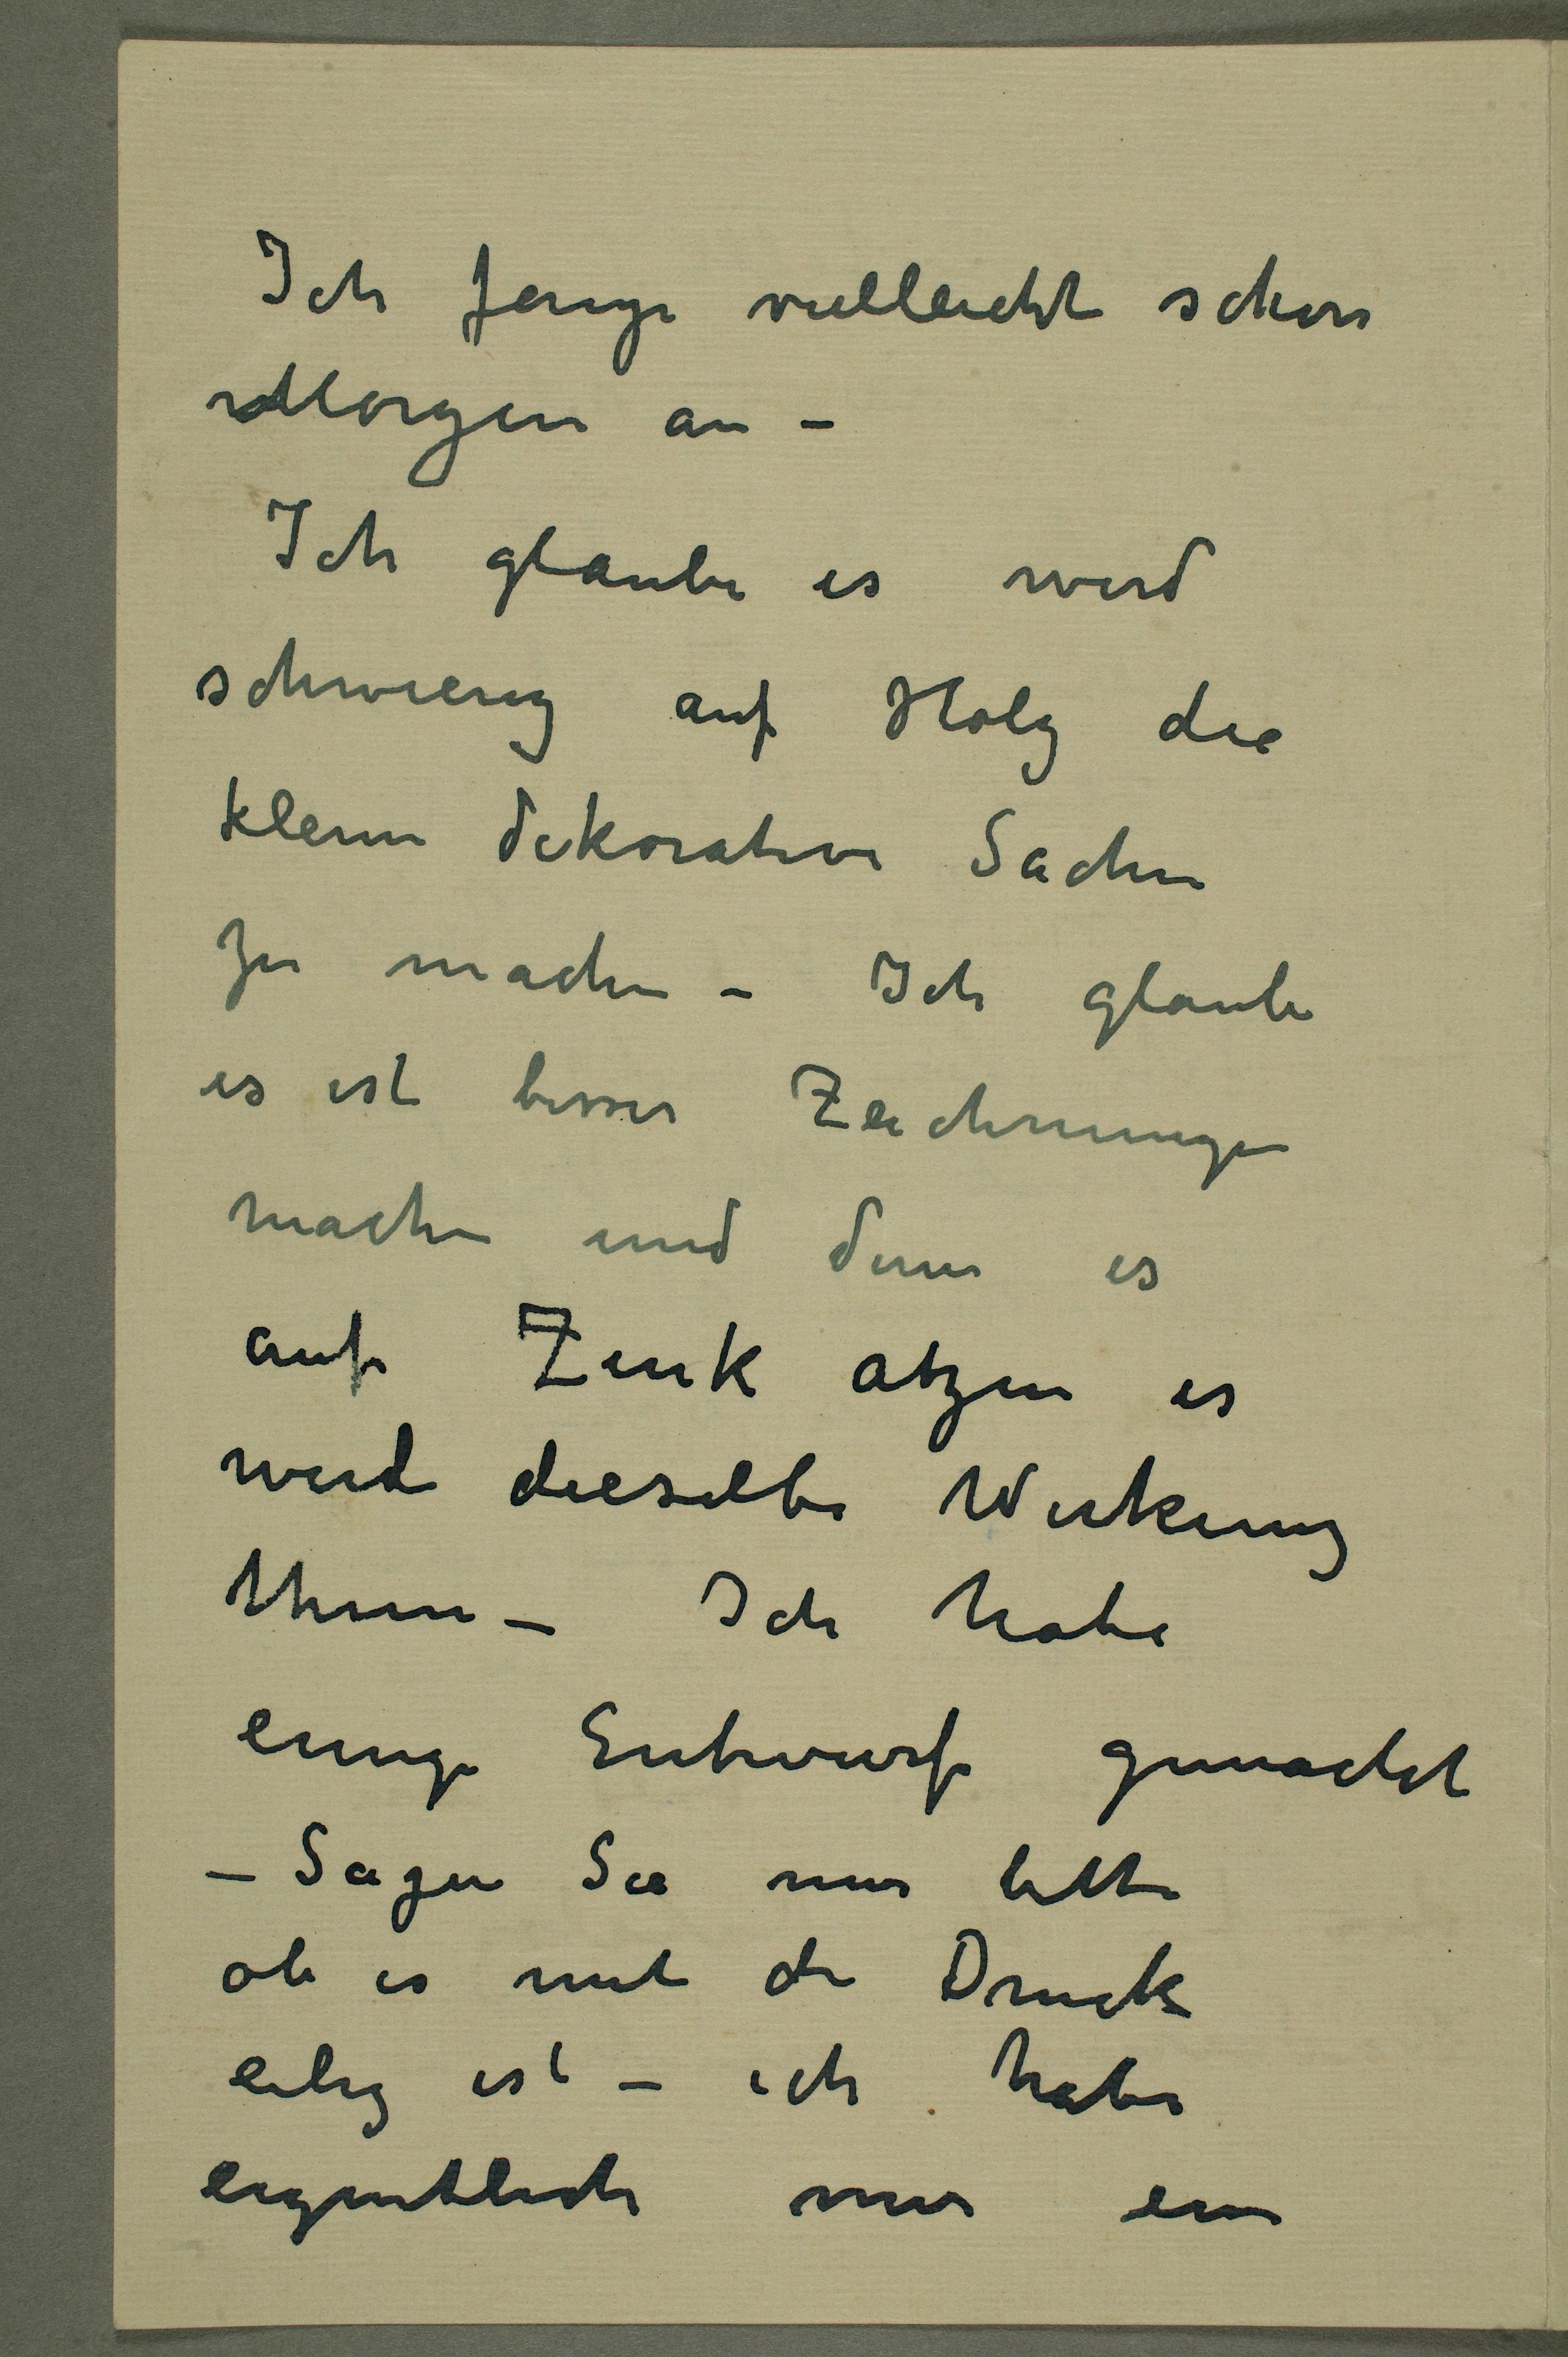 Ich fange vielleicht schon
Morgen an –
Ich glaube es wird
schwierig auf Holz die
kleine dekorative Sachen
zu machen – Ich glaube
es ist besser Zeichnungen
machen und denn es
auf Zink atzen es
wird dieselbe Wirkung
thun – Ich habe
einige Entwurfe gemacht
– Sagen Sie mir bitte
ob es mit de Druck
eilig ist – ich habe
eigentlich nur ein